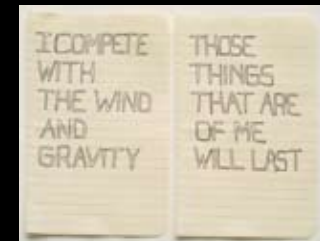 I COMPETE
WITH
THE WIND
AND
GRAVITY
THOSE
THINGS
THAT ARE
OF ME
WILL LAST